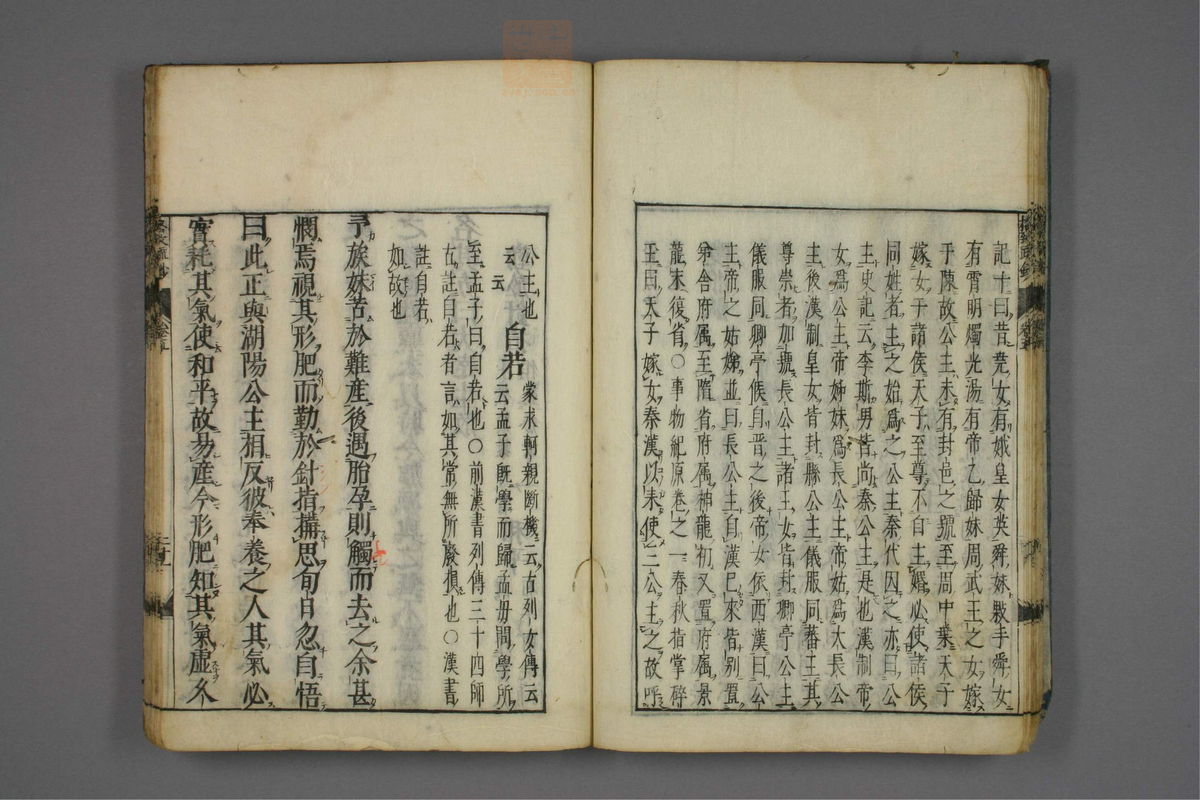 記十曰昔堯女有娥皇女英舜妹敤手舜女
有霄明燭光湯有帝乙歸妹周武王之女嫁
于陳故公主未有封邑之號至周中葉天子
嫁女于諸侯天子至尊不自主婚必使諸侯
同姓者主之始爲之公主秦代因之亦曰公
主史記云李斯男皆尚秦公主是也漢制帝
女爲公主帝姊妹爲長公主帝姑爲大長公
主後漢制皇女皆封縣公主儀服同蕃王其
尊崇者加號長公主諸王女皆封卿亭公主
儀服同卿亭候自晋之後帝女依西漢曰公
主帝之姑娣並曰長公主自漢已來皆別置
第舎府属至隋省府属神龍初又置府属景
龍末復省〇事物紀原卷之一春秋指掌碎
玉曰天子嫁女秦漢以来使三公主之故呼
公主也
云云
自若
蒙求軻親斷機云古列女傳云
云孟子既學而歸孟母問學所
至孟子曰自若也〇前漢書列傳三十四師
古註自若者言如其常無所廢損也〇漢書
註自若
如故也
予族妹苦於難產後遇胎孕則觸而去之余甚
憫焉視其形肥而勤於針指搆思旬日忽自悟
曰此正與湖陽公主相反彼奉養之人其氣必
實耗其氣使和平故易產今形肥知其氣虛久